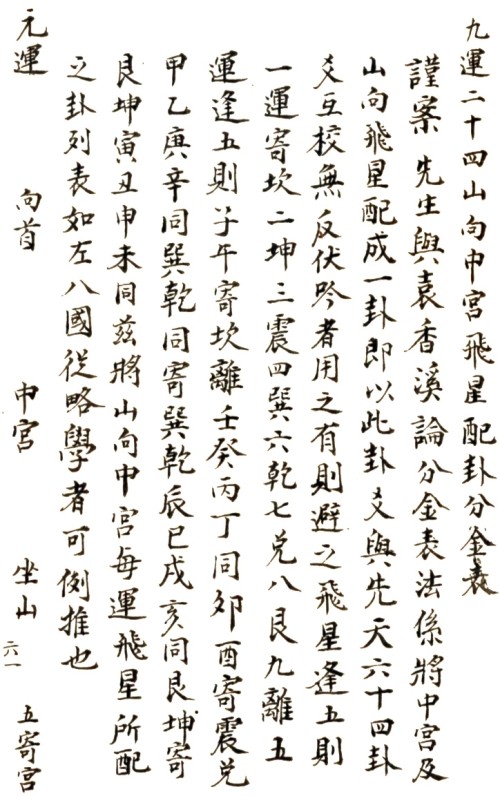 九運二十四山向中宮飛星配卦分金表
謹案 先生與袁香溪論分金表法係將中宮及
山向飛星配成一卦即以此卦爻與先天六十四卦
爻互校無反伏吟者用之有則避之飛星逢五則
一運寄坎二坤三震四巽六乾七兌八艮九離五
運逢五則子午寄坎離壬癸丙丁同卯酉寄震兌
甲乙庚辛同巽乾同寄巽乾辰巳戌亥同艮坤寄
艮坤寅丑申未同茲將山向中宮每運飛星所配
之卦列表如左八國從略學者可例推也
元運 向首 中宮 坐山 五寄宮
六一